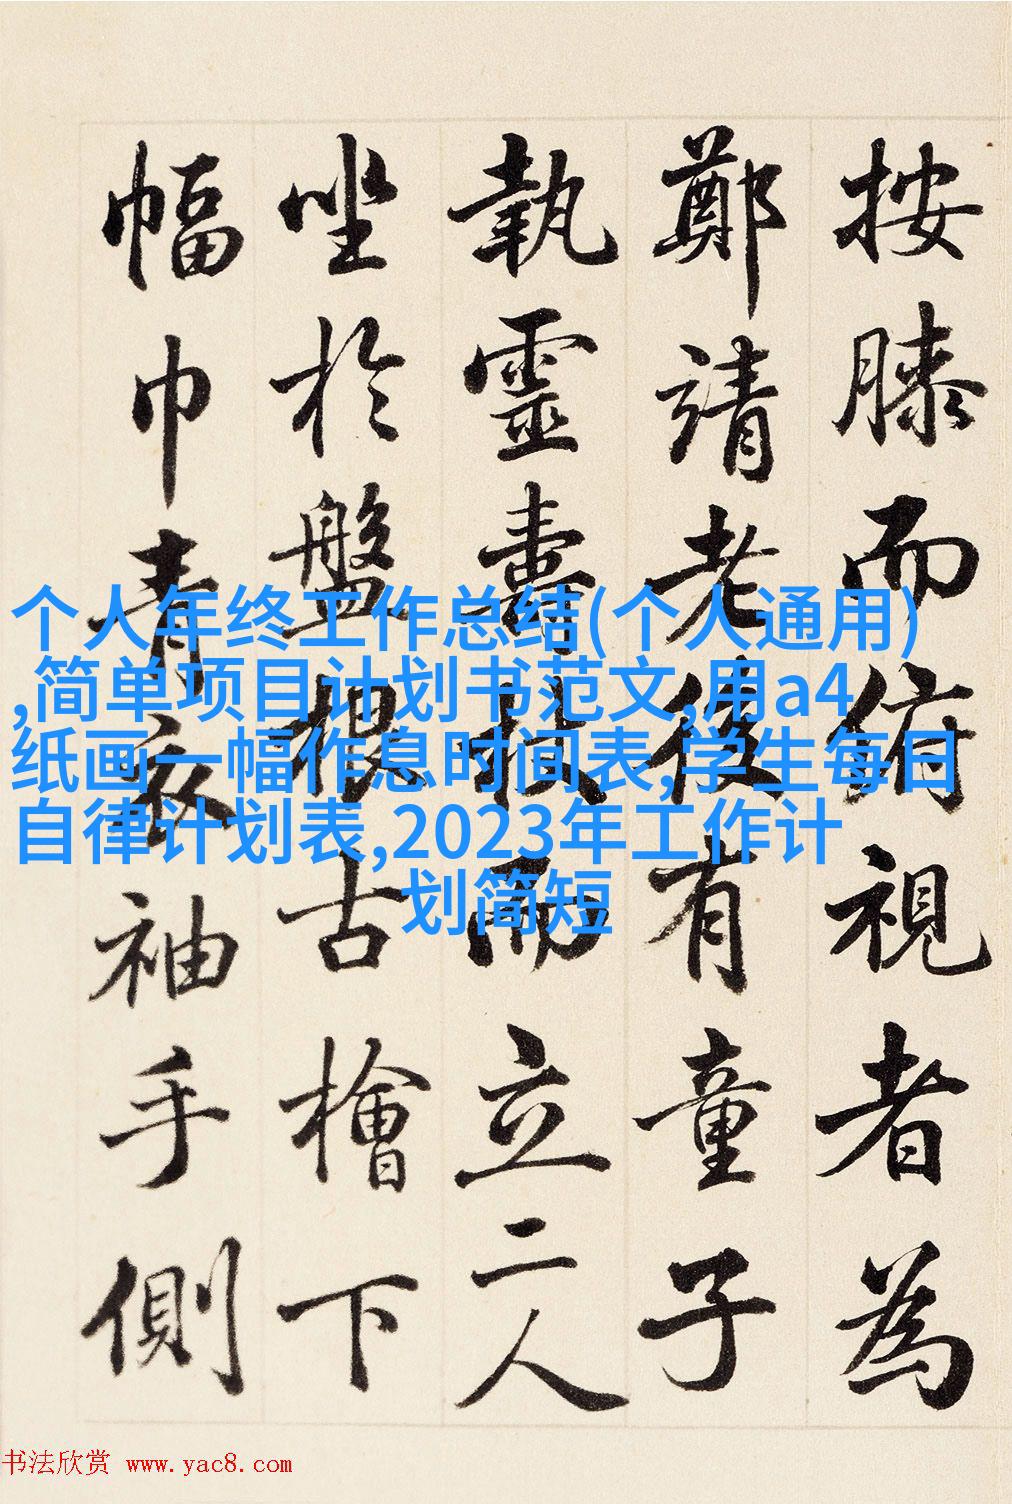 按膝而俯視者為
鄭靖老後有童子
執靈壽杖而立二人
坐於盤根古檜下
幅巾青衣袖手側
个人年终工作总结(个人通用)
,简单项目计划书范文,用a4
纸画一幅作息时间表,学生每日
自律计划表,2023年工作计
划简短
书法欣赏 www.yac8.com